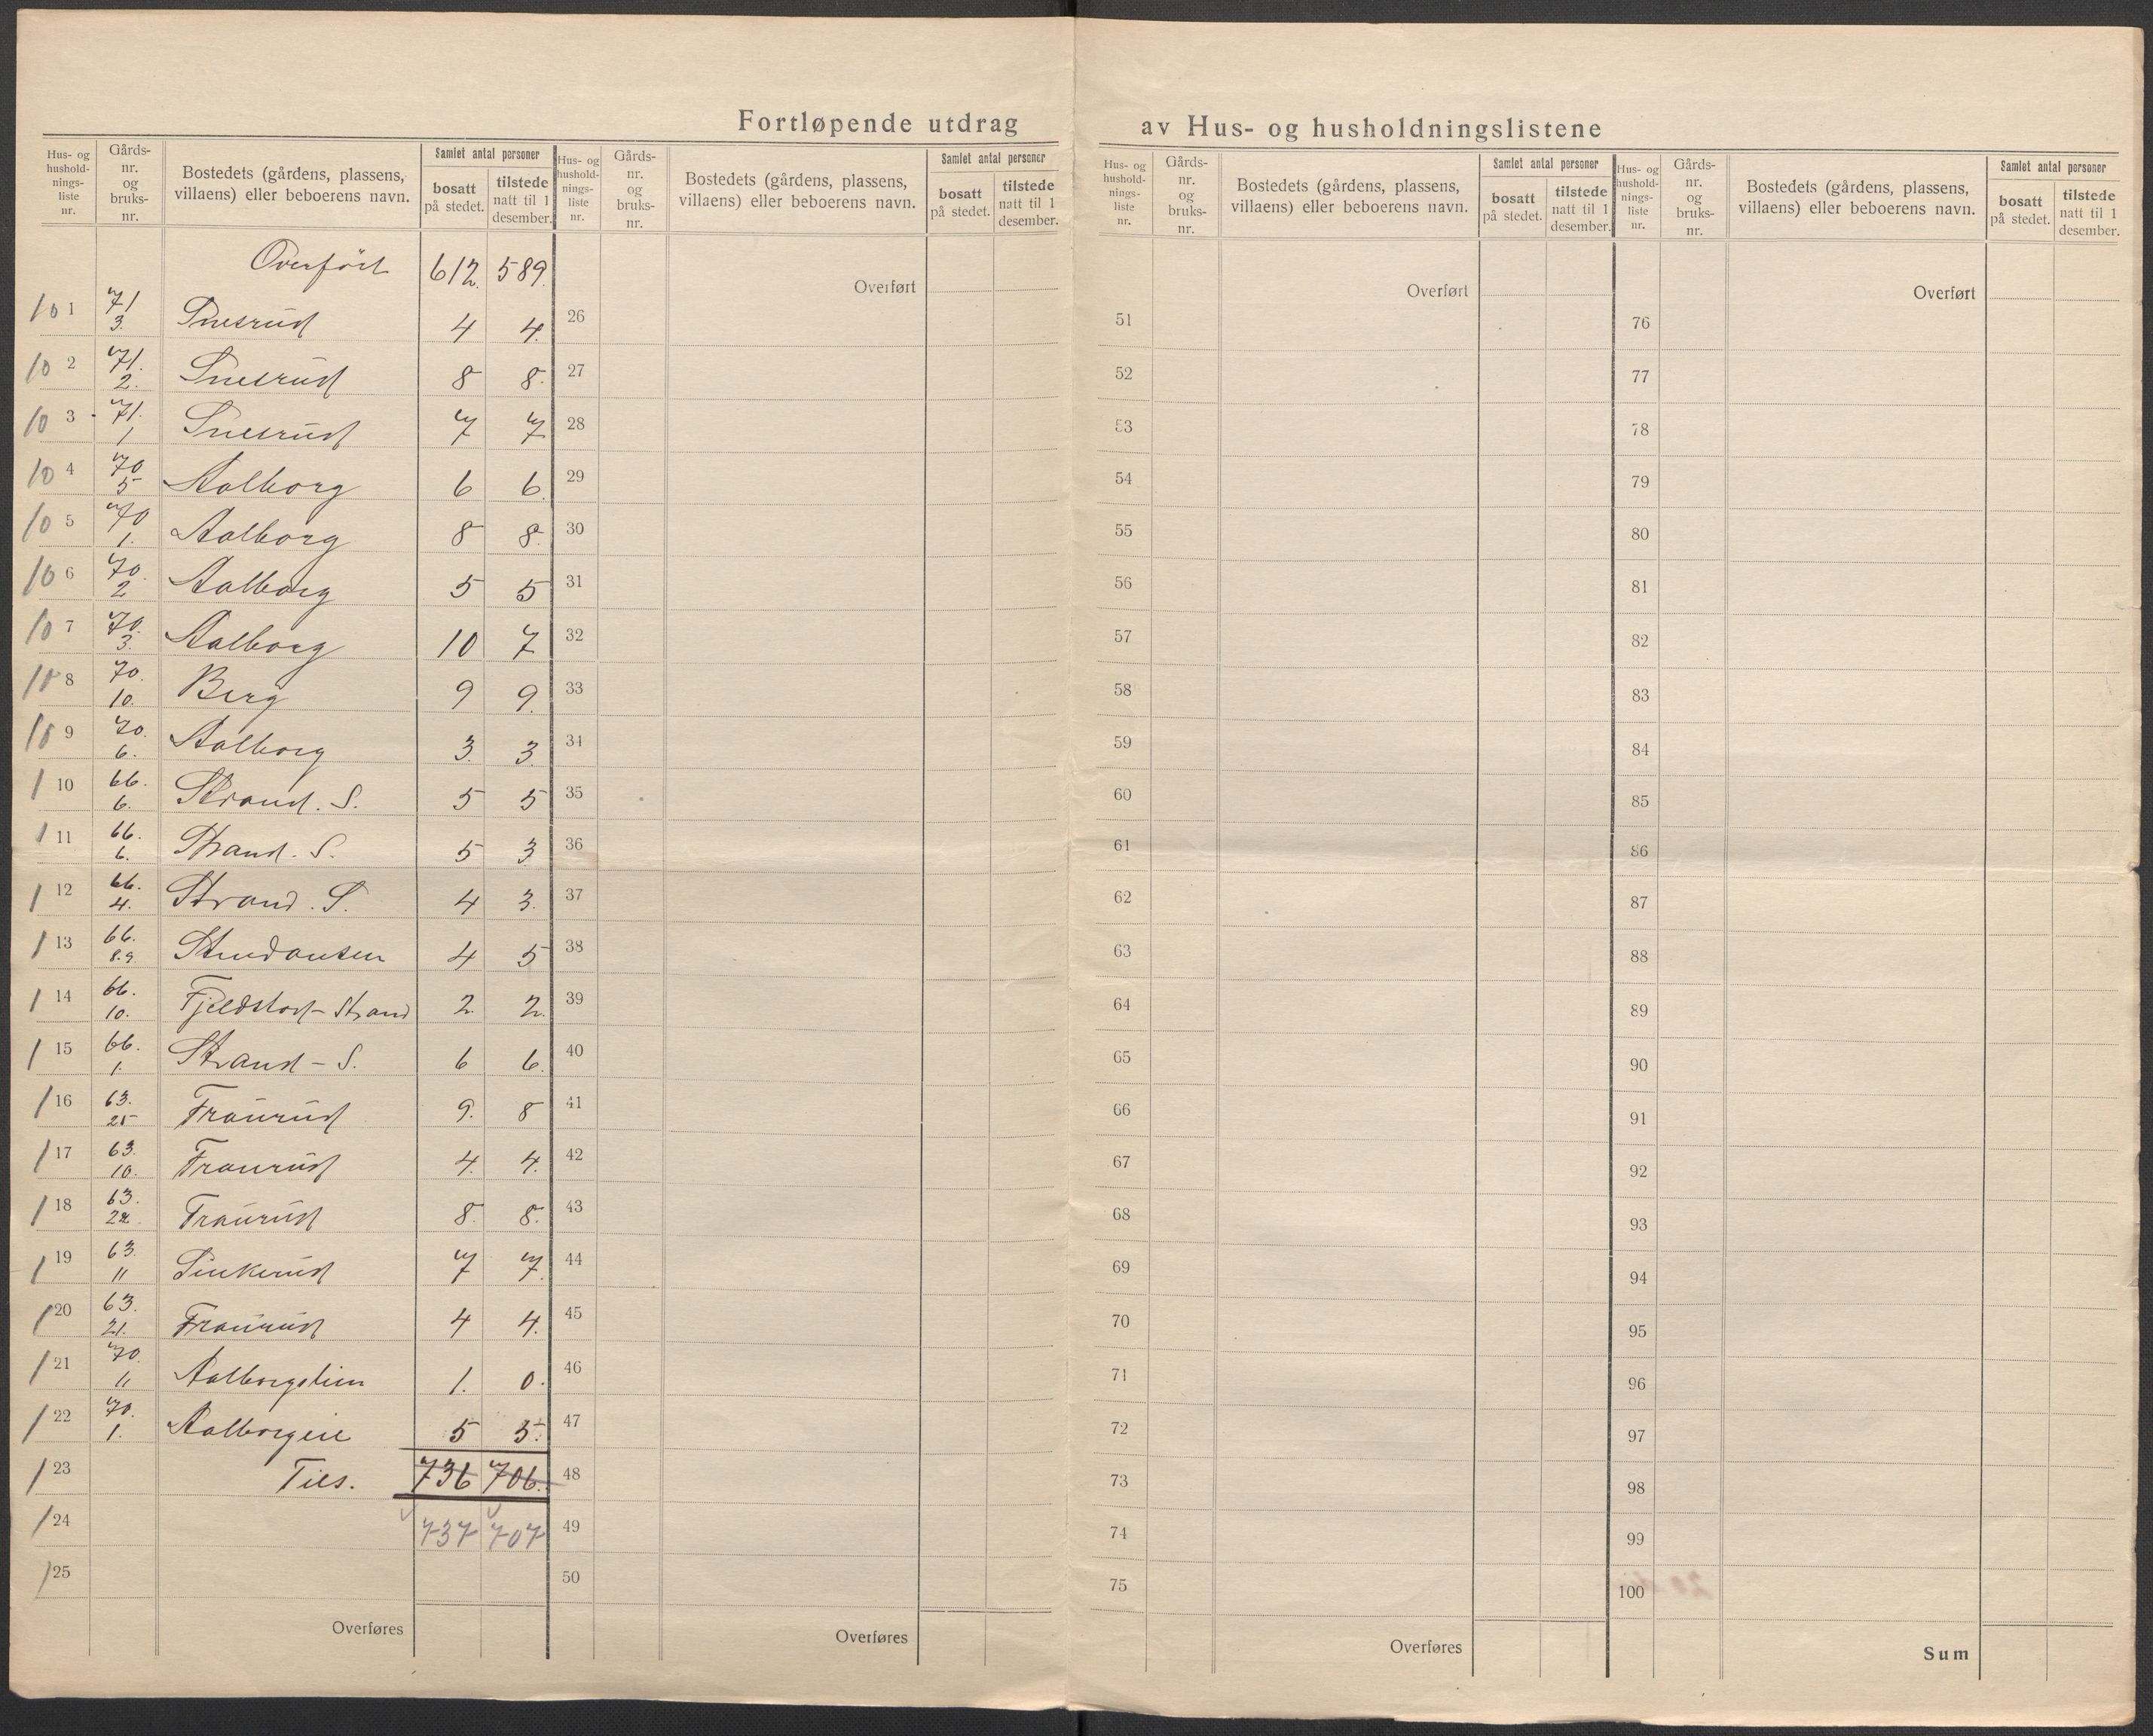 Fortløpende utdrag av Hus- og husholdningslistene
Hus- og hushold-nings-liste nr. Gårds-nr. og bruks-nr. Bostedets (gårdens, plassens, villaens) eller beboerens navn. Samlet antal personer bosatt på stedet. tilstede natt til 1 desember.
Overført 612. 589.
101 71 3. Snesrud 4 4.
102 71. 2. Snesrud 8 8.
103 71. 1 Snesrud 7 7
104 70 5 Aalborg 6 6.
105 70 1. Aalborg 8 8.
106 70. 2 Aalborg 5 5
107 70. 3. Aalborg 10 7
108 70. 10. Berg 9 9.
109 70. 6. Aalborg 3. 3.
110 66. 6. Strand. S. 5 5
111 66. 6. Strand. S. 5 3.
112 66. 4. Strand. S. 4 3.
113 66. 8.9. 4 5
114 66. 10. Strand 2. 2.
115 66. 1. Strand - S. 6 6.
116 63. 25 Fraurud 9. 8
117 63. 10. Fraurud 4. 4.
118 63. Fraurud 8. 8.
119 63. 11 7 7.
120 63. 21. Fraurud 4 4.
121 70. 11 1. 0.
122 70. 1. Aalborgeie 5 5.
123 Tils. 736 706.
124 737 707
125
Overføres
Hus- og hushold-nings-liste nr. Gårds-nr. og bruks-nr. Bostedets (gårdens, plassens, villaens) eller beboerens navn. Samlet antal personer bosatt på stedet. tilstede natt til 1 desember.
Overført
26
27
28
29
30
31
32
33
34
35
36
37
38
39
40
41
42
43
44
45
46
47
48
49
50
Overføres
Hus- og hushold-nings-liste nr. Gårds-nr. og bruks-nr. Bostedets (gårdens, plassens, villaens) eller beboerens navn. Samlet antal personer bosatt på stedet. tilstede natt til 1 desember.
Overført
51
52
53
54
55
56
57
58
59
60
61
62
63
64
65
66
67
68
69
70
71
72
73
74
75
Overføres
Hus- og hushold-nings-liste nr. Gårds-nr. og bruks-nr. Bostedets (gårdens, plassens, villaens) eller beboerens navn. Samlet antal personer bosatt på stedet. tilstede natt til 1 desember.
Overført
76
77
78
79
80
81
82
83
84
85
86
87
88
89
90
91
92
93
94
95
96
97
98
99
100
Sum